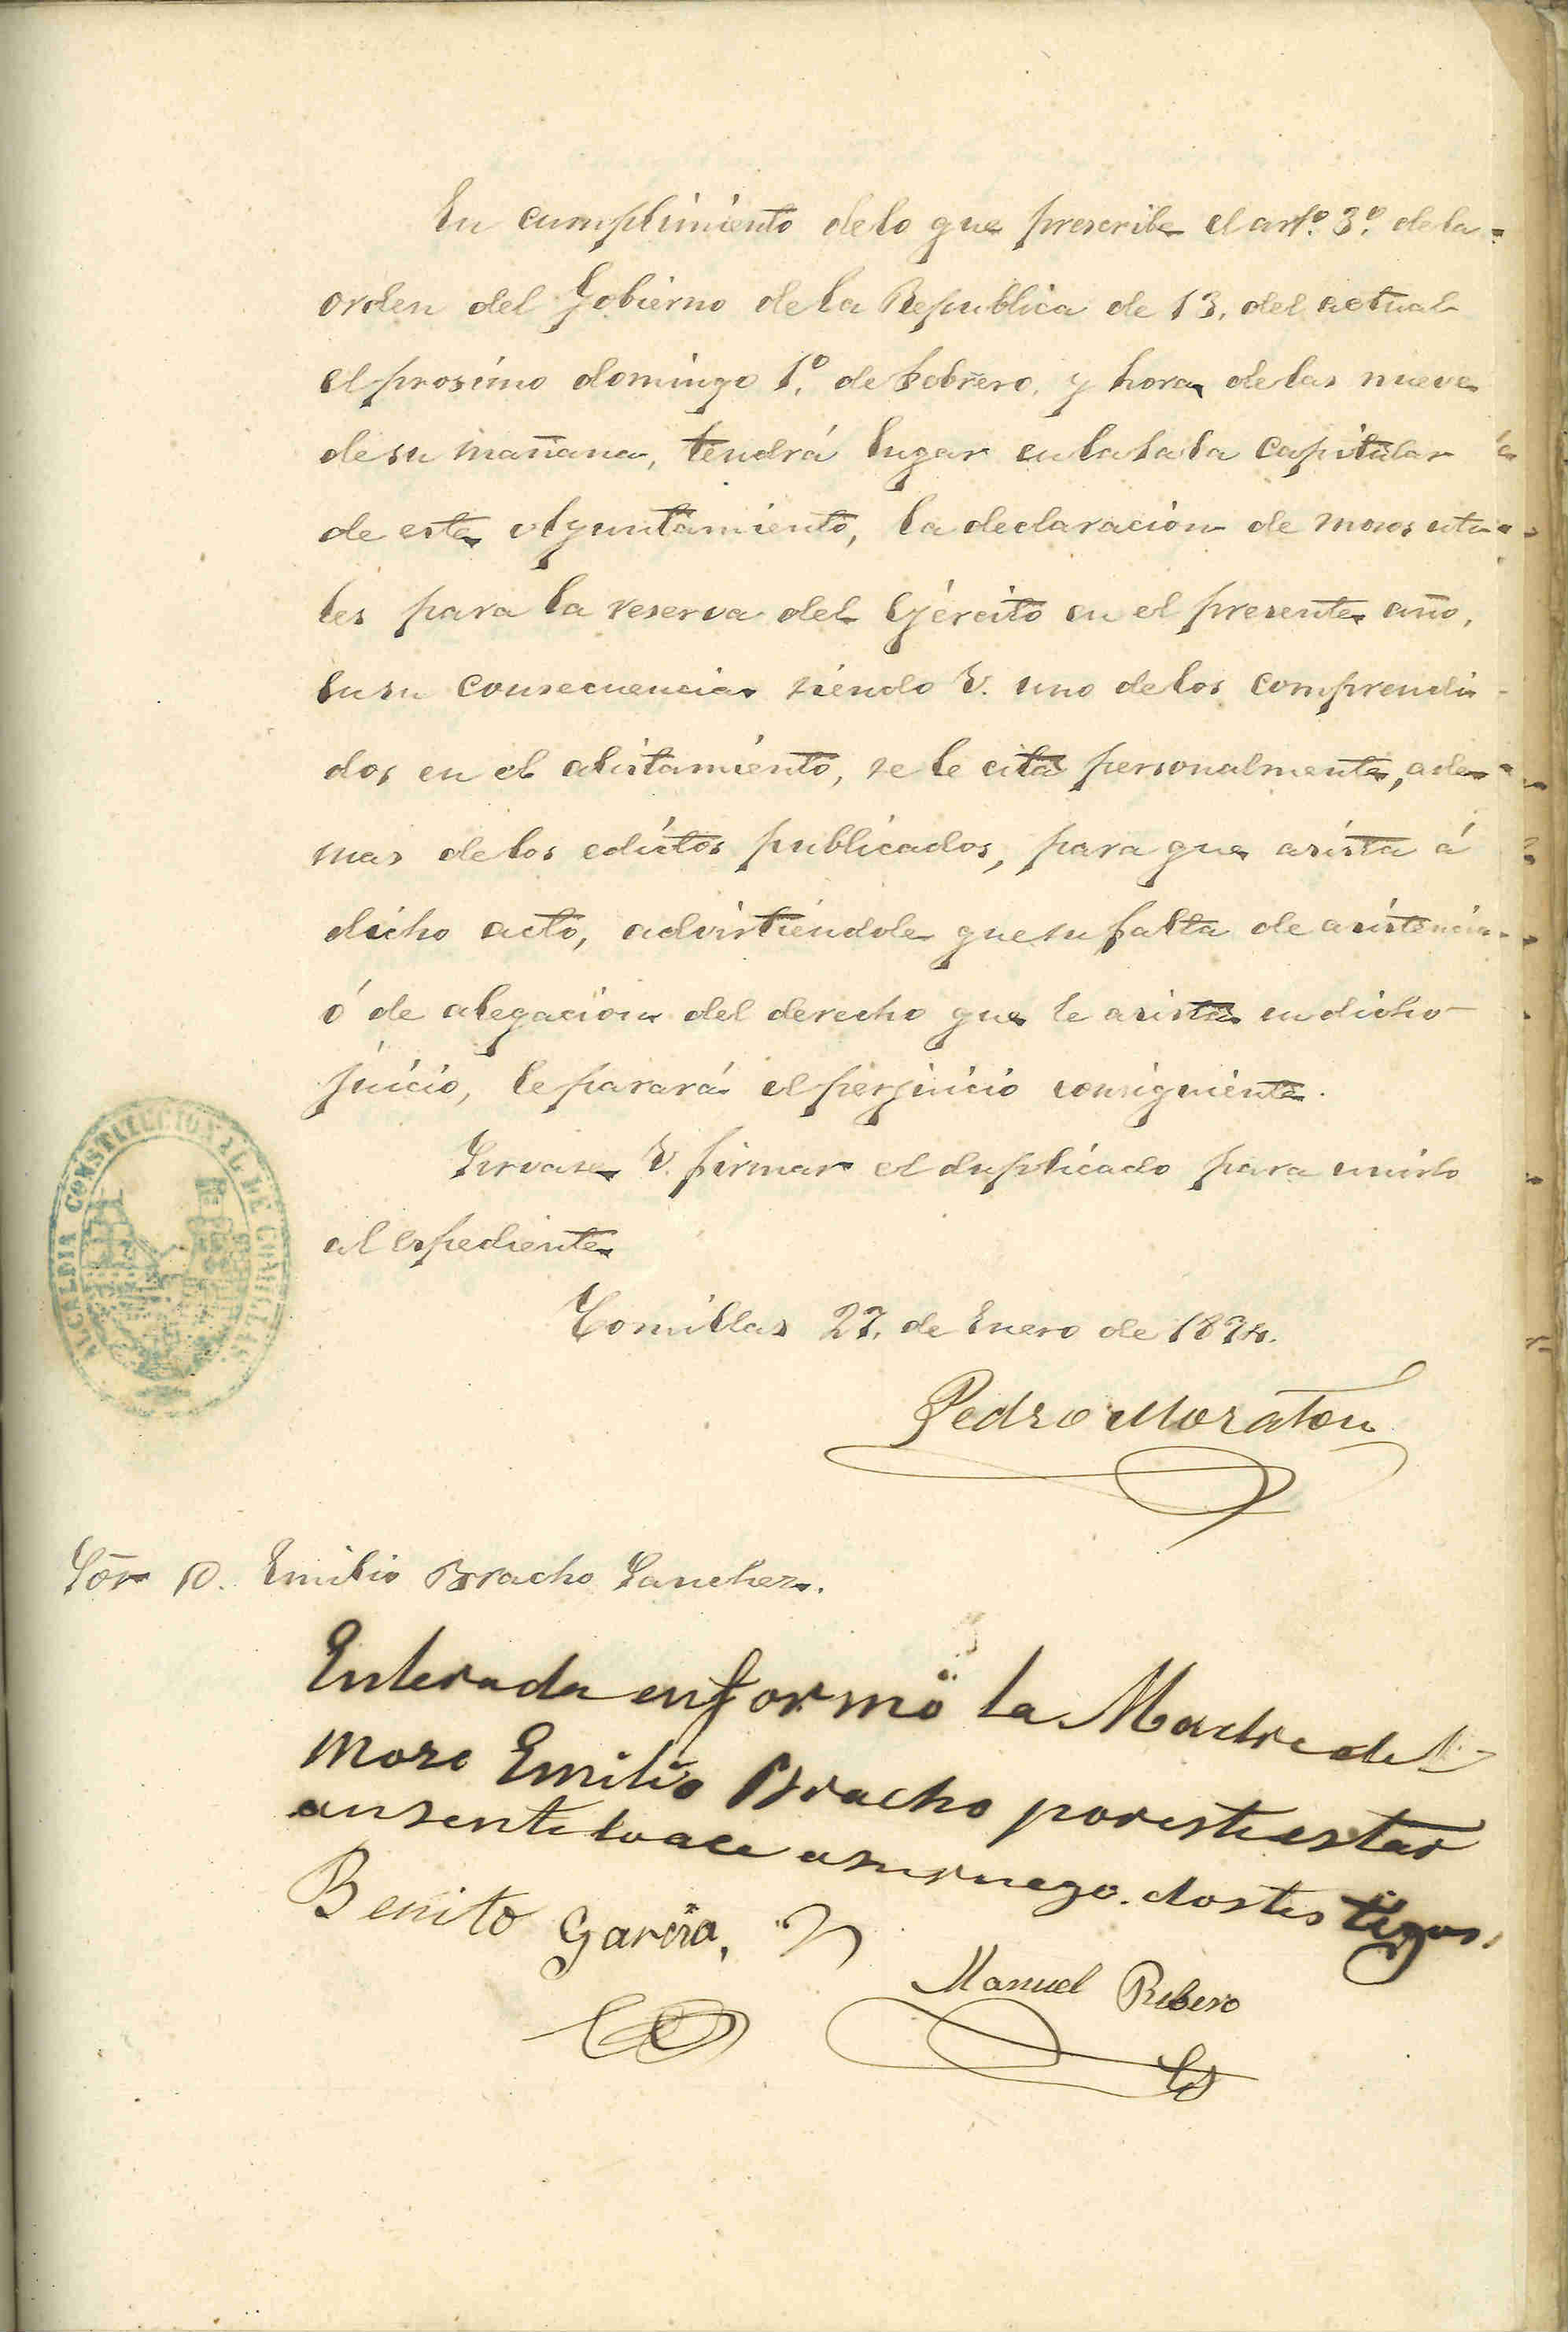 En cumplimiento de lo que prescribe el artº. 3º. de la
orden del Gobierno de la Republica de 13. del actual
el prosimo domingo 1º. de Febrero, y hora de las nueve
de su mañana, tendrá lugar en la sala Capitular
de este Ayuntamiento, la declaracion de mozos uti-
les para la reserva del Ejército en el presente año,
En su consecuencia siendo V. uno de los comprendi-
dos en el alistamiento, se le cita personalmente, ade-
mas de los edictos publicados, para que asista á
dicho acto, advirtiéndole que su falta de asistencia
ó de alegacion del derecho que le asista en dicho
juicio, le parará el perjuicio consiguiente.
Sirvase V. firmar el duplicado para unirlo
al espediente
ALCALDIA CONSTITUCIONAL DE COMILLAS
Comillas 27. de Enero de 1874.
Pedro Moraton
Sor D. Emilio Bracho Sanchez.
Enterada en forma la Madre del
Mozo Emilio Bracho por este estar
ausente lo ace a su ruego. dos testigos,
Benito Garcia,
Manuel Ribero